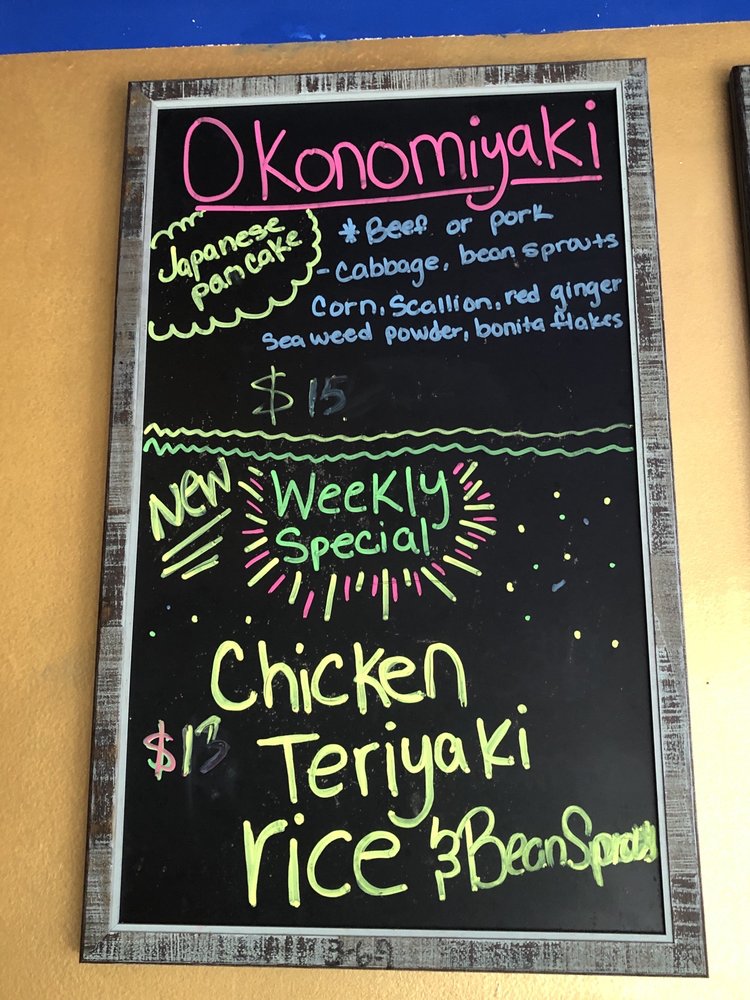 Okonomiyaki
Japanese
pancake
* Beef or pork
- Cabbage, bean sprouts
Corn, Scallion, red ginger
Seaweed powder, bonita flakes
$15
NEW
Weekly
Special
Chicken
$13
Teriyaki
rice & Bean Sprouts